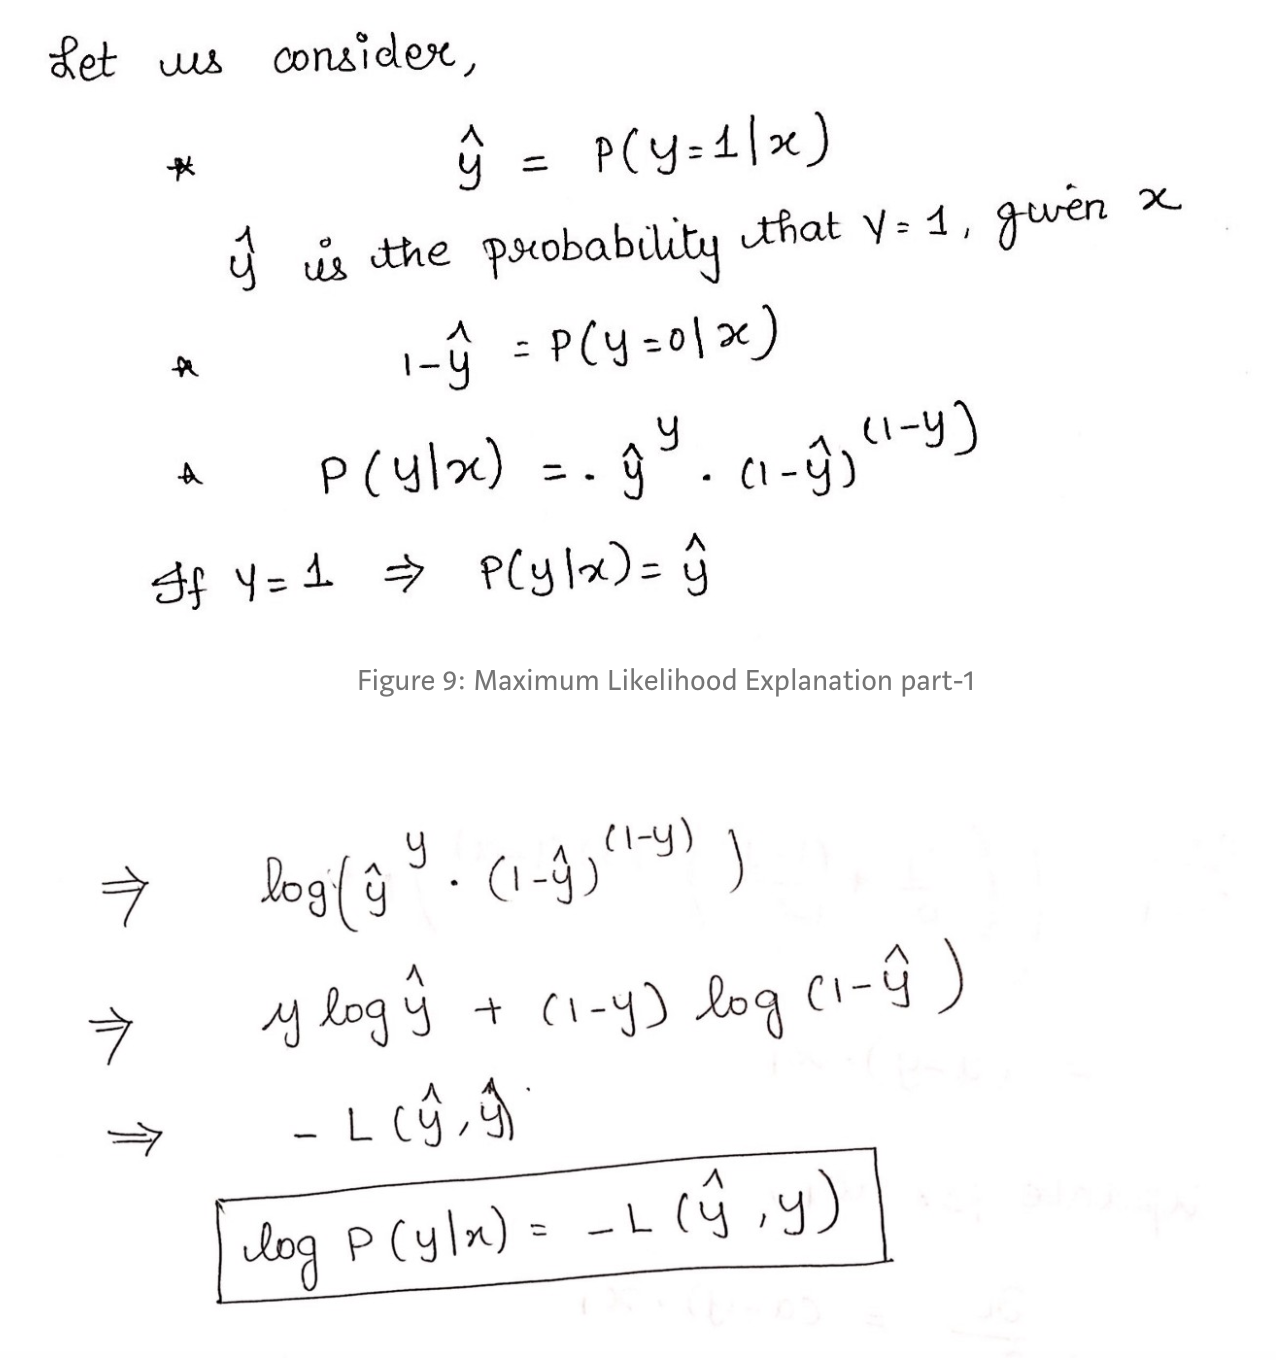 Let us consider,
* ŷ = P(y=1|x)
ŷ is the probability that y=1, given x
* 1-ŷ = P(y=0|x)
* P(y|x) = . ŷ^y . (1-ŷ)^(1-y)
If y=1 ⇒ P(y|x) = ŷ
Figure 9: Maximum Likelihood Explanation part-1
⇒ log(ŷ^y . (1-ŷ)^(1-y))
⇒ y log ŷ + (1-y) log (1-ŷ)
⇒ - L(ŷ, ŷ)
log P(y|x) = -L(ŷ, y)